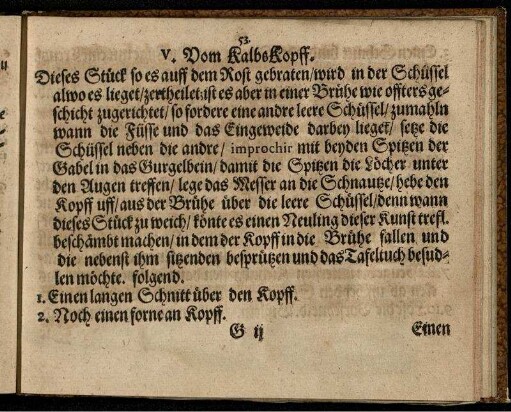 53.
V. Vom KalbsKopff.
Dieses Stück so es auff dem Rost gebraten/wird in der Schüssel
alwo es lieget/zertheilet: ist es aber in einer Brühe wie offters ge-
schicht zugerichtet/so fordere eine andre leere Schüssel/zumahln
wann die Füsse und das Eingeweide darbey lieget/ setze die
Schüssel neben die andre/ improchir mit beyden Spitzen der
Gabel in das Gurgelbein/damit die Spitzen die Löcher unter
den Augen treffen/lege das Messer an die Schnautze/hebe den
Kopff uff/aus der Brühe über die leere Schüssel/denn wann
dieses Stück zu weich/könte es einen Neuling dieser Kunst trefl.
beschämbt machen/in dem der Kopff in die Brühe fallen und
die nebenst ihm sitzenden besprützen und das Tafeltuch besud-
len möchte. folgend.
1. Einen langen Schnitt über den Kopff.
2. Noch einen forne an Kopff.
G ij Einen